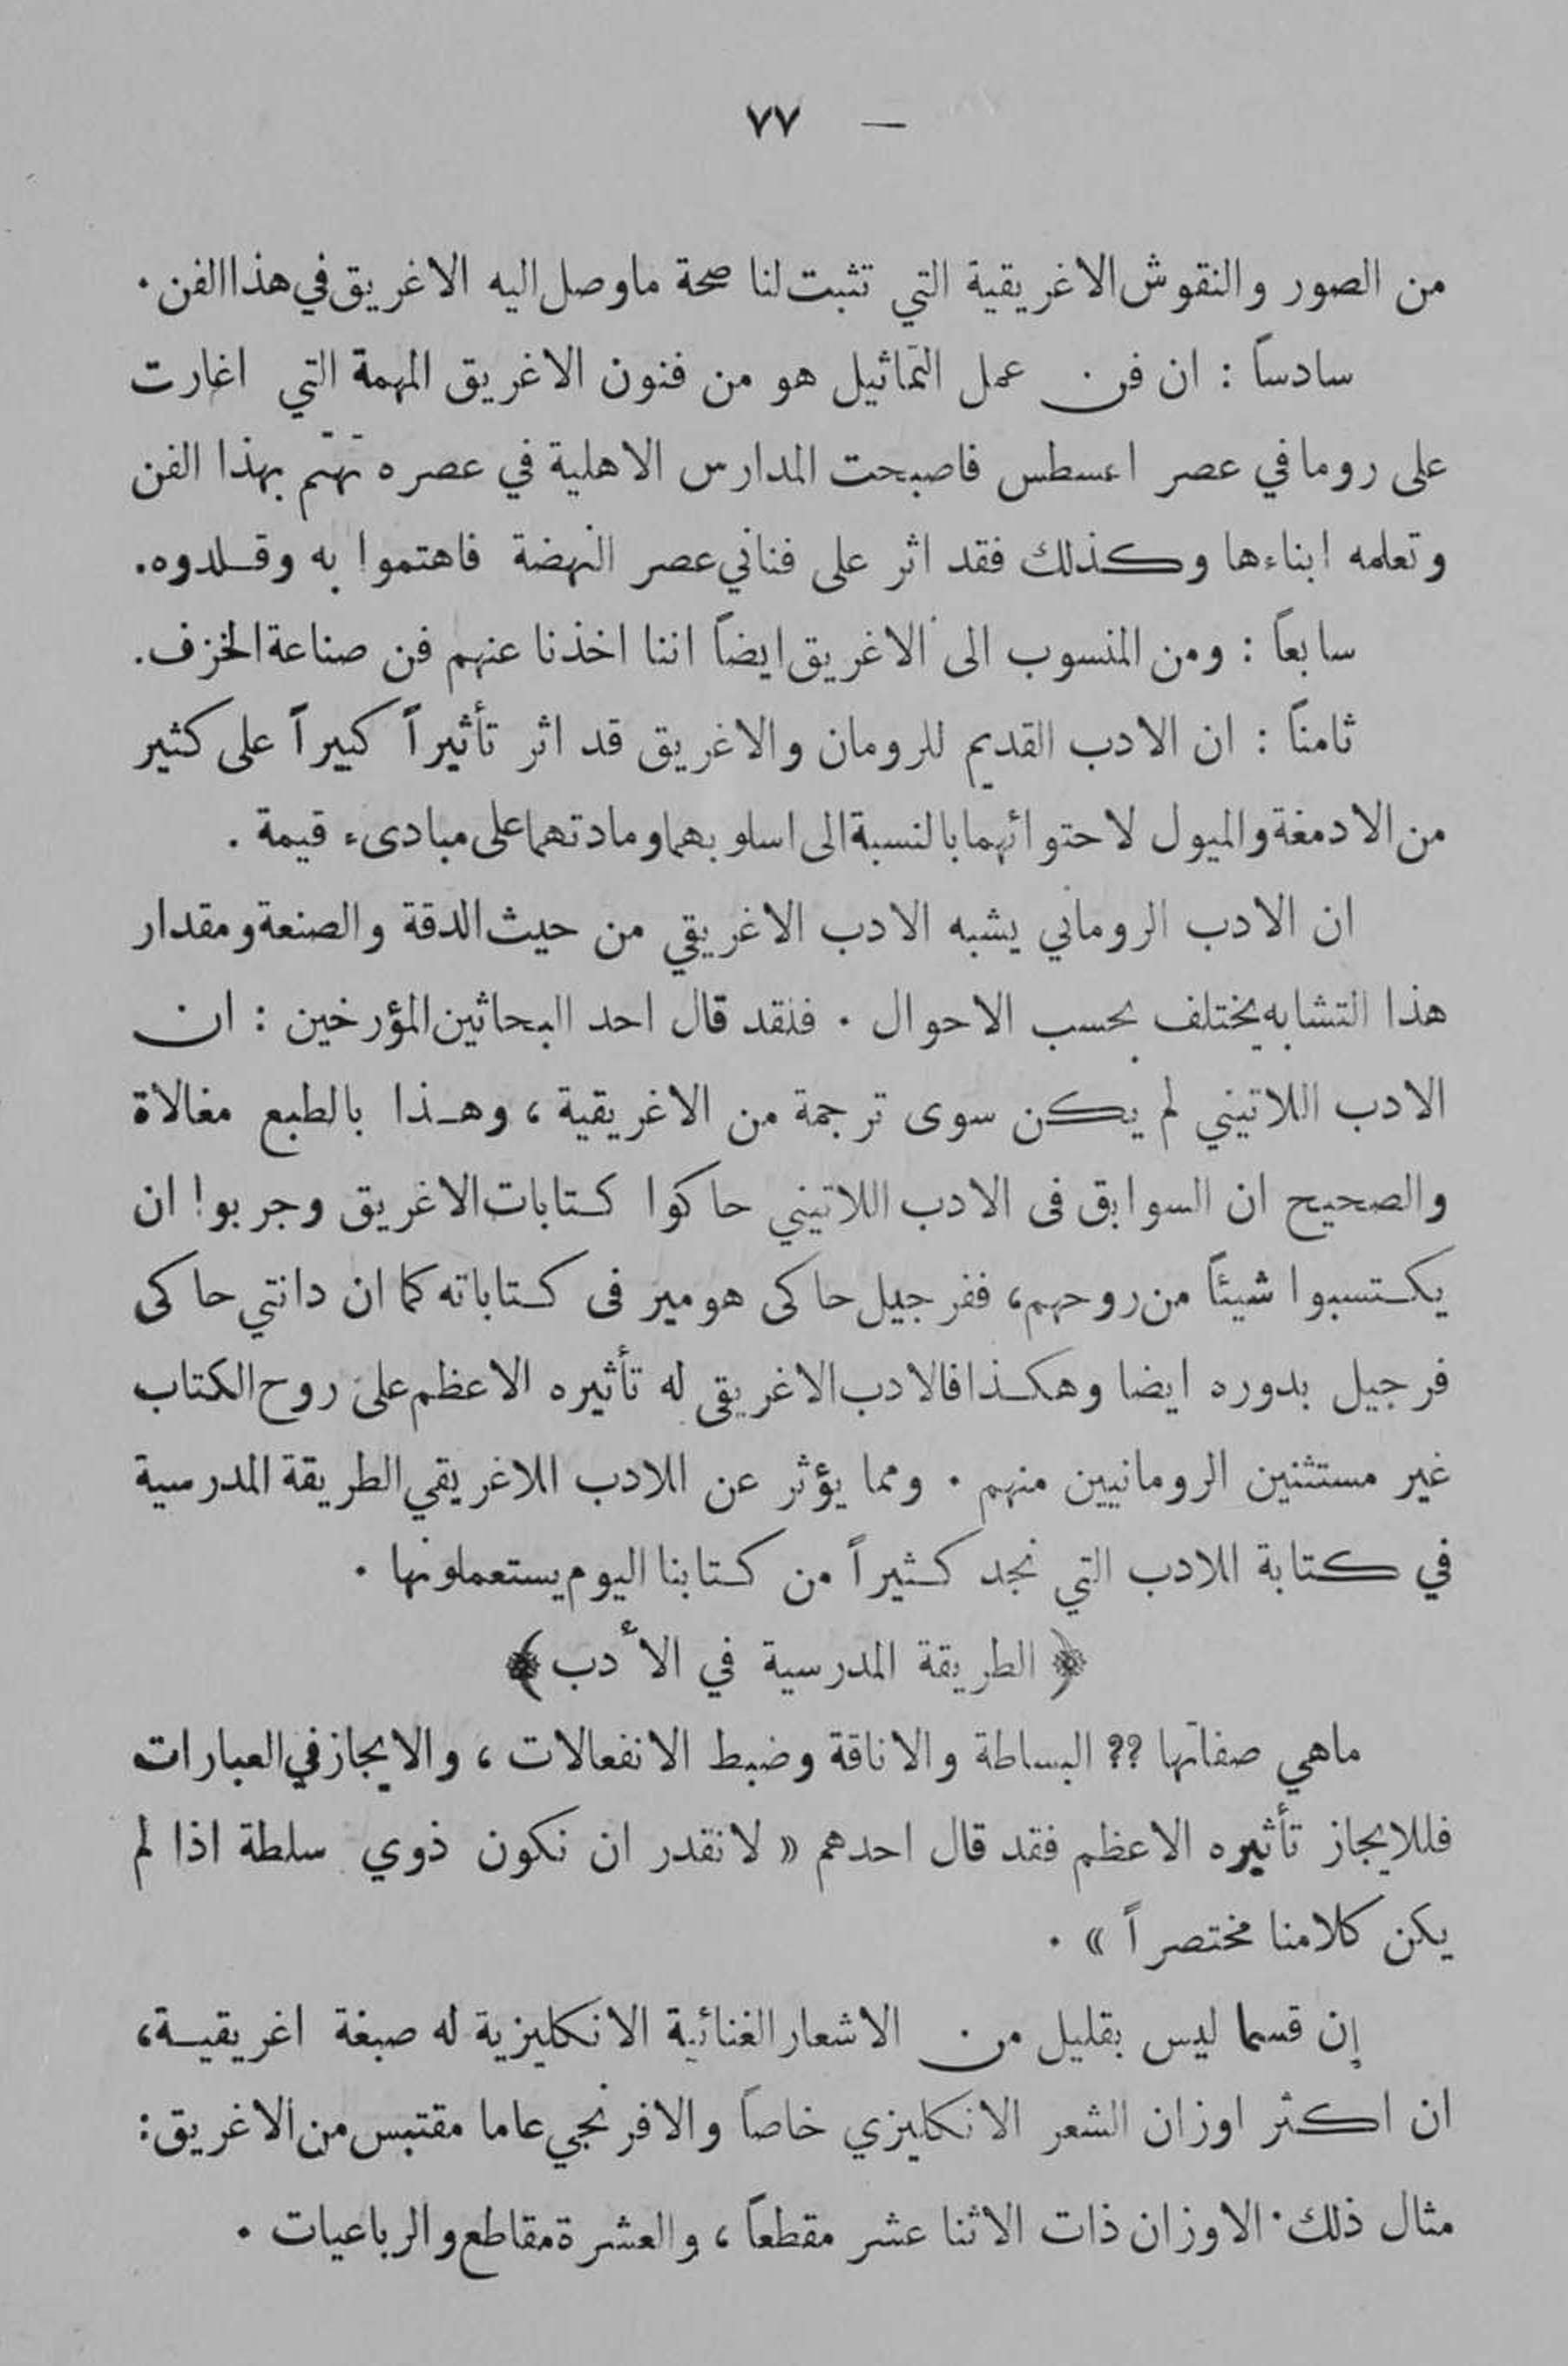 — ٧٧
من الصور والنقوش الاغريقية التي تثبت لنا صحة ماوصل اليه الاغريق في هذا الفن .
سادساً : ان فن عمل التماثيل هو من فنون الاغريق المهمة التي اغارت
على روما في عصر اغسطس فاصبحت المدارس الاهلية في عصره تهتم بهذا الفن
وتعلمه ابناءها وكذلك فقد اثر على فناني عصر النهضة فاهتموا به وقلدوه .
سابعاً : ومن المنسوب الى الاغريق ايضاً اننا اخذنا عنهم فن صناعة الخزف .
ثامناً : ان الادب القديم للرومان والاغريق قد اثر تأثيراً كبيراً على كثير
من الادمغة والميول لاحتوائهما بالنسبة الى اسلوبهما ومادتهما على مبادىء قيمة .
ان الادب الروماني يشبه الادب الاغريقي من حيث الدقة والصنعة ومقدار
هذا التشابه يختلف بحسب الاحوال . فلقد قال احد البحاثين المؤرخين : ان
الادب اللاتيني لم يكن سوى ترجمة من الاغريقية ، وهذا بالطبع مغالاة
والصحيح ان السوابق فى الادب اللاتيني حاكوا كتابات الاغريق وجربوا ان
يكتسبوا شيئاً من روحهم ، ففرجيل حاكى هومير فى كتاباته كما ان دانتي حاكى
فرجيل بدوره ايضا وهكذا فالادب الاغريقى له تأثيره الاعظم على روح الكتاب
غير مستثنين الرومانيين منهم . ومما يؤثر عن اللادب اللاغريقي الطريقة المدرسية
في كتابة اللادب التي نجد كثيراً من كتابنا اليوم يستعملونها .
﴿ الطريقة المدرسية في الأدب ﴾
ماهي صفاتها ?? البساطة والاناقة وضبط الانفعالات ، والايجاز في العبارات
فللايجاز تأثيره الاعظم فقد قال احدهم « لانقدر ان نكون ذوي سلطة اذا لم
يكن كلامنا مختصراً » .
إن قسما ليس بقليل من الاشعار الغنائية الانكليزية له صبغة اغريقية ،
ان اكثر اوزان الشعر الانكليزي خاصاً والافرنجي عاما مقتبس من الاغريق :
مثال ذلك . الاوزان ذات الاثنا عشر مقطعاً ، والعشرة مقاطع والرباعيات .